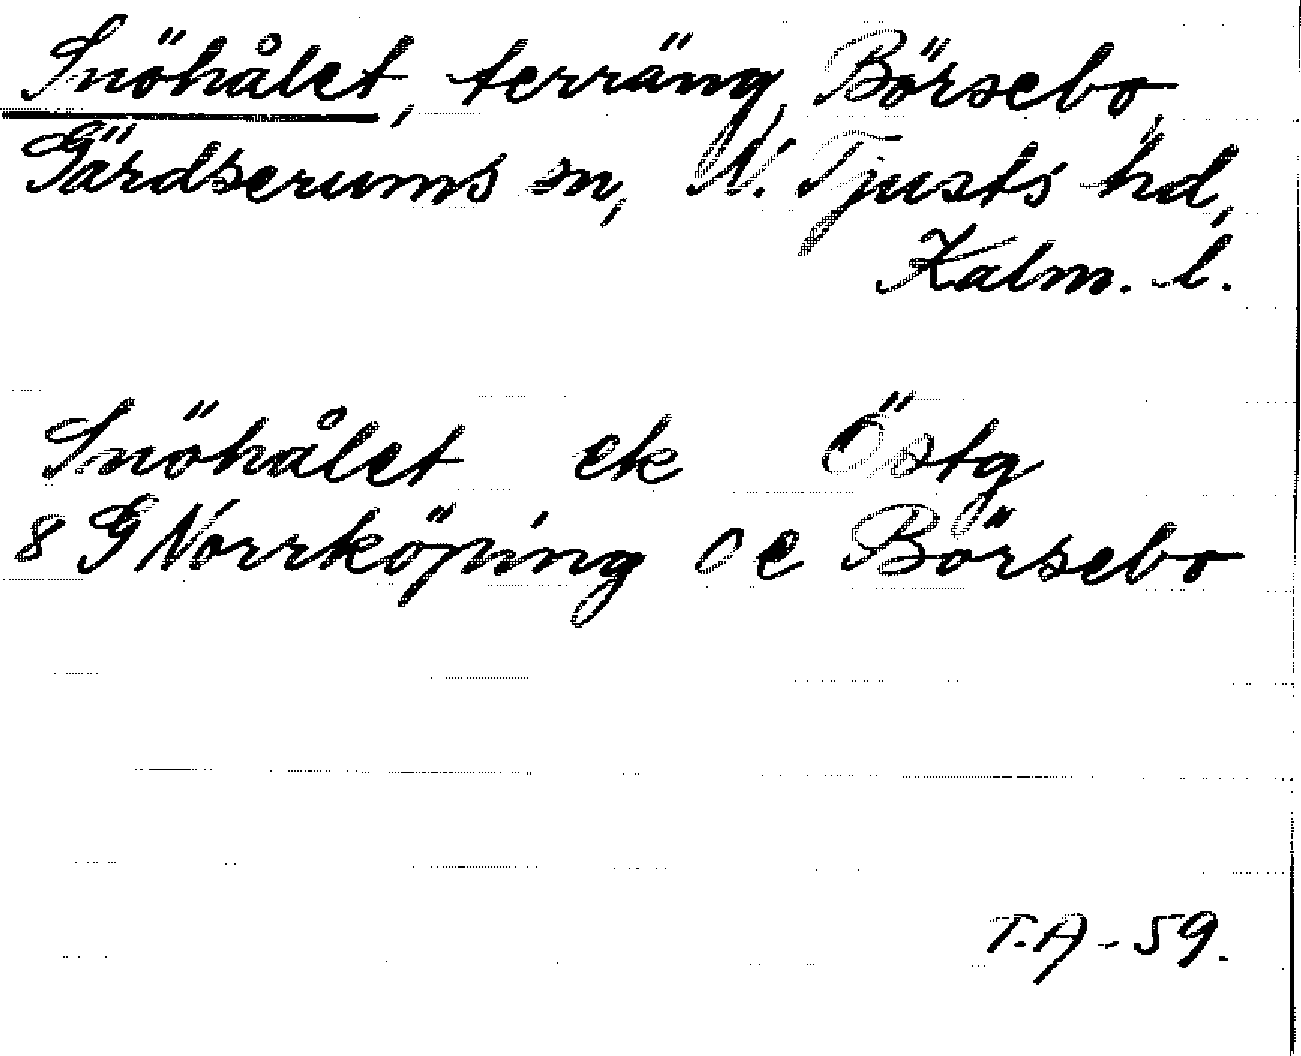 Snöhålet, terräng, Börsebo,
Gärdserums sn, N. Tjusts hd,
Kalm. l.
Snöhålet ek Östg
8 G Norrköping 0 e Börsebo
T.A-59.